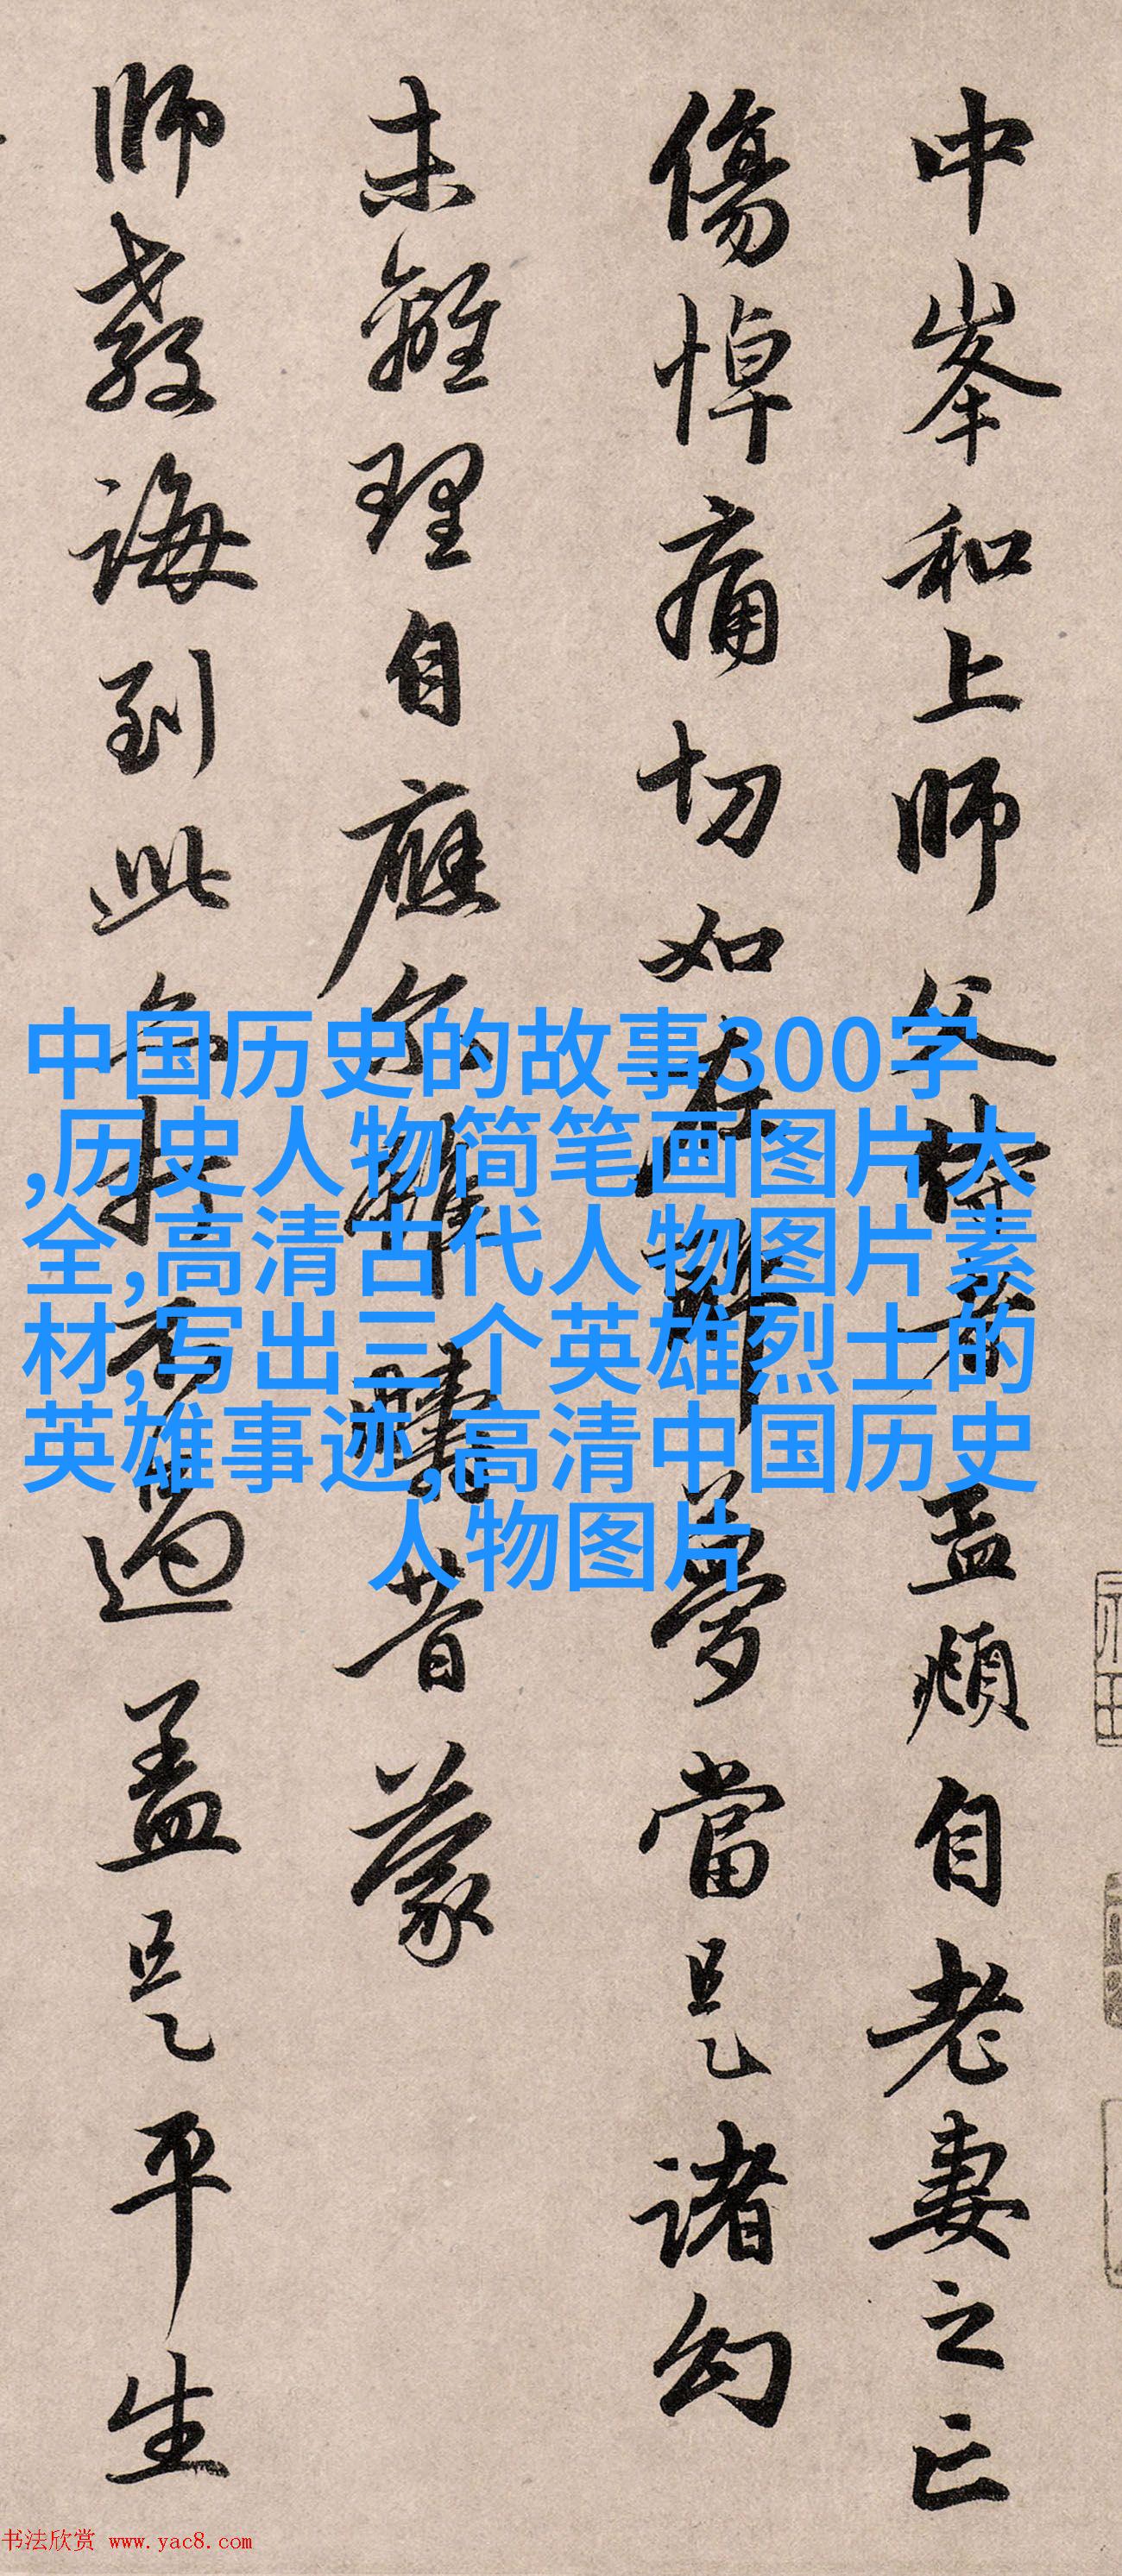 中峯和上師父侍者孟頫自老妻之亡
傷悼痛切如在醉夢當是諸幻
未離理自應尔雖疇昔蒙
師教誨到此亦打不過盖是平生
中国历史的故事300字
,历史人物简笔画图片大
全,高清古代人物图片素
材,写出三个英雄烈士的
英雄事迹,高清中国历史
人物图片
书法欣赏 www.yac8.com